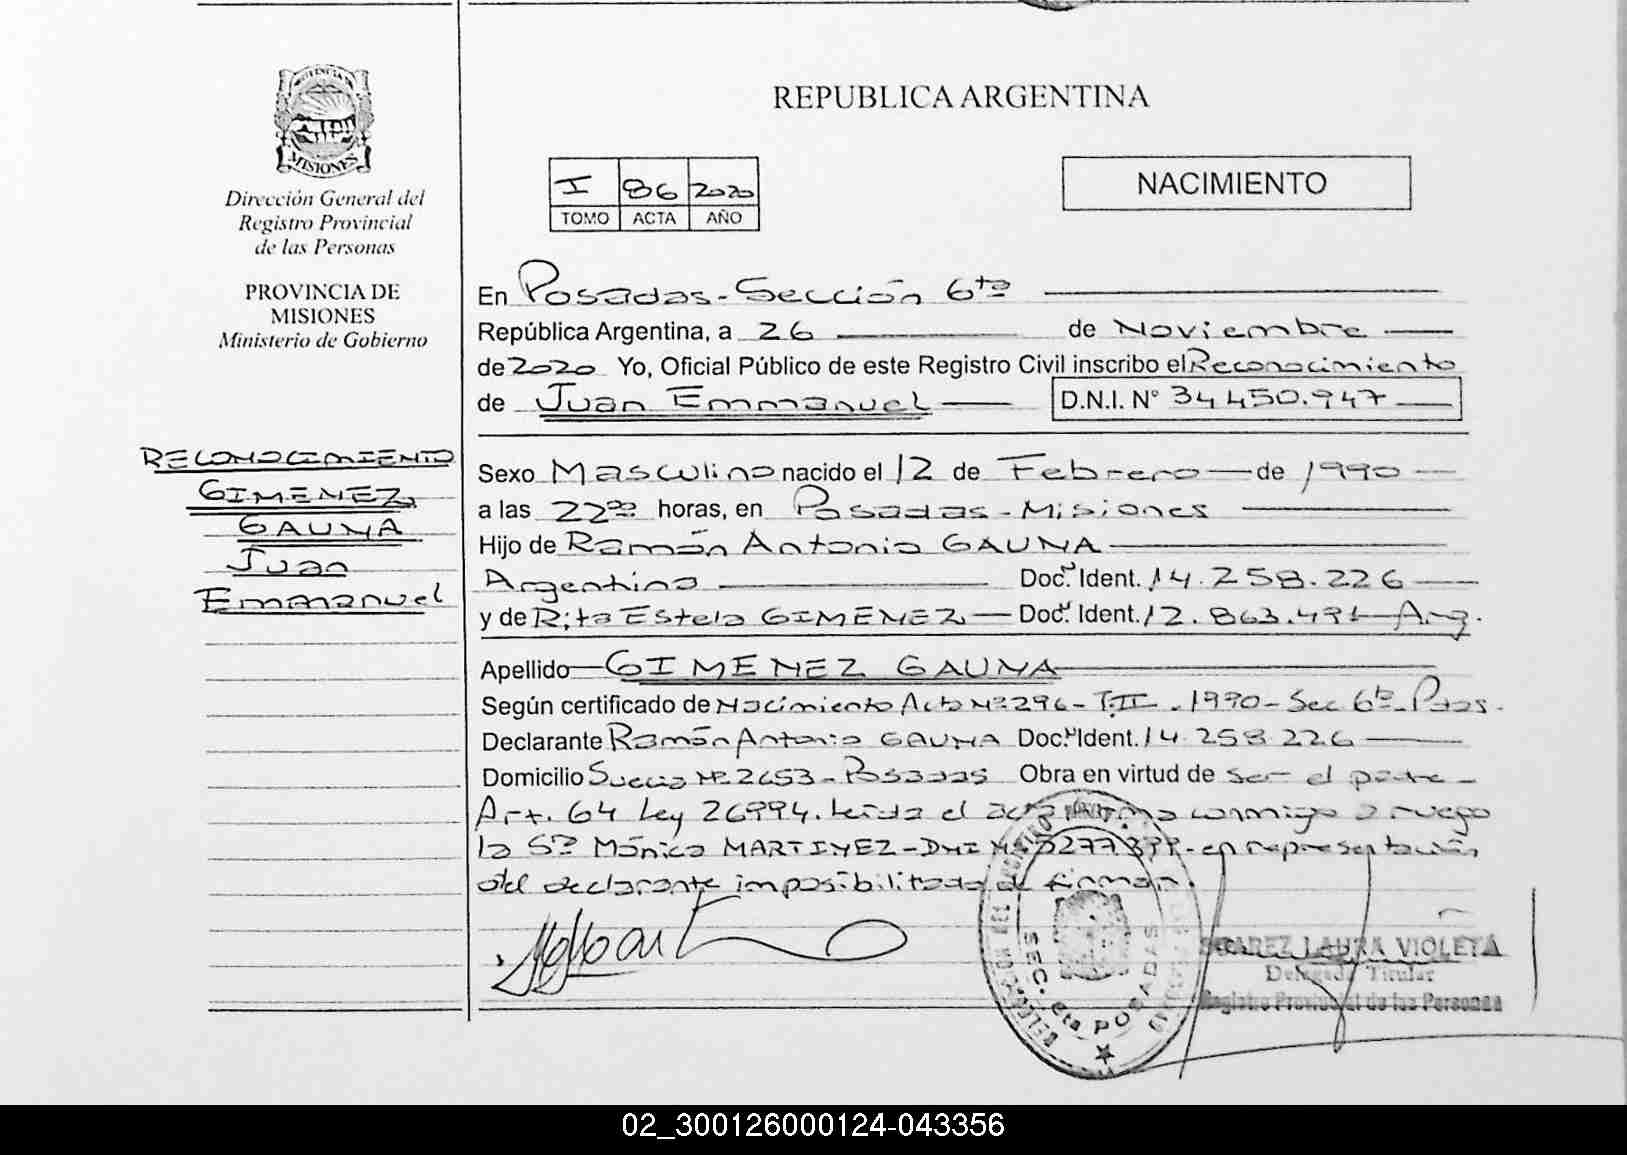 REPUBLICA ARGENTINA
MISIONES
Dirección General del
Registro Provincial
de las Personas
PROVINCIA DE
MISIONES
Ministerio de Gobierno
I 86 2020
TOMO ACTA AÑO
NACIMIENTO
En Posadas - Sección 6ta
República Argentina, a 26 de Noviembre
de 2020 Yo, Oficial Público de este Registro Civil inscribo el Reconocimiento
de Juan Emmanuel D.N.I. N° 34.450.947
RECONOCIMIENTO
GIMENEZ
GAUNA
Juan
Emmanuel
Sexo Masculino nacido el 12 de Febrero de 1990
a las 22 horas, en Posadas - Misiones
Hijo de Ramón Antonio GAUNA
Argentino Doc. Ident. 14.258.226
y de Rita Estela GIMENEZ Doc. Ident. 12.863.491 Arg.
Apellido GIMENEZ GAUNA
Según certificado de Nacimiento Acta N° 296 - T.II - 1990 - Sec 6ta - Pdas.
Declarante Ramón Antonio GAUNA Doc. Ident. 14.258.226
Domicilio Suecia N° 2653 - Posadas Obra en virtud de ser el padre -
Art. 64 Ley 26994. Leída el acta firma conmigo a ruego
la Sra Mónica MARTINEZ - DNI - en representación
del declarante imposibilitado de firmar.
SEC. 6ta POSADAS
SUAREZ LAURA VIOLETA
Delegada Titular
Registro Provincial de las Personas
02_300126000124-043356